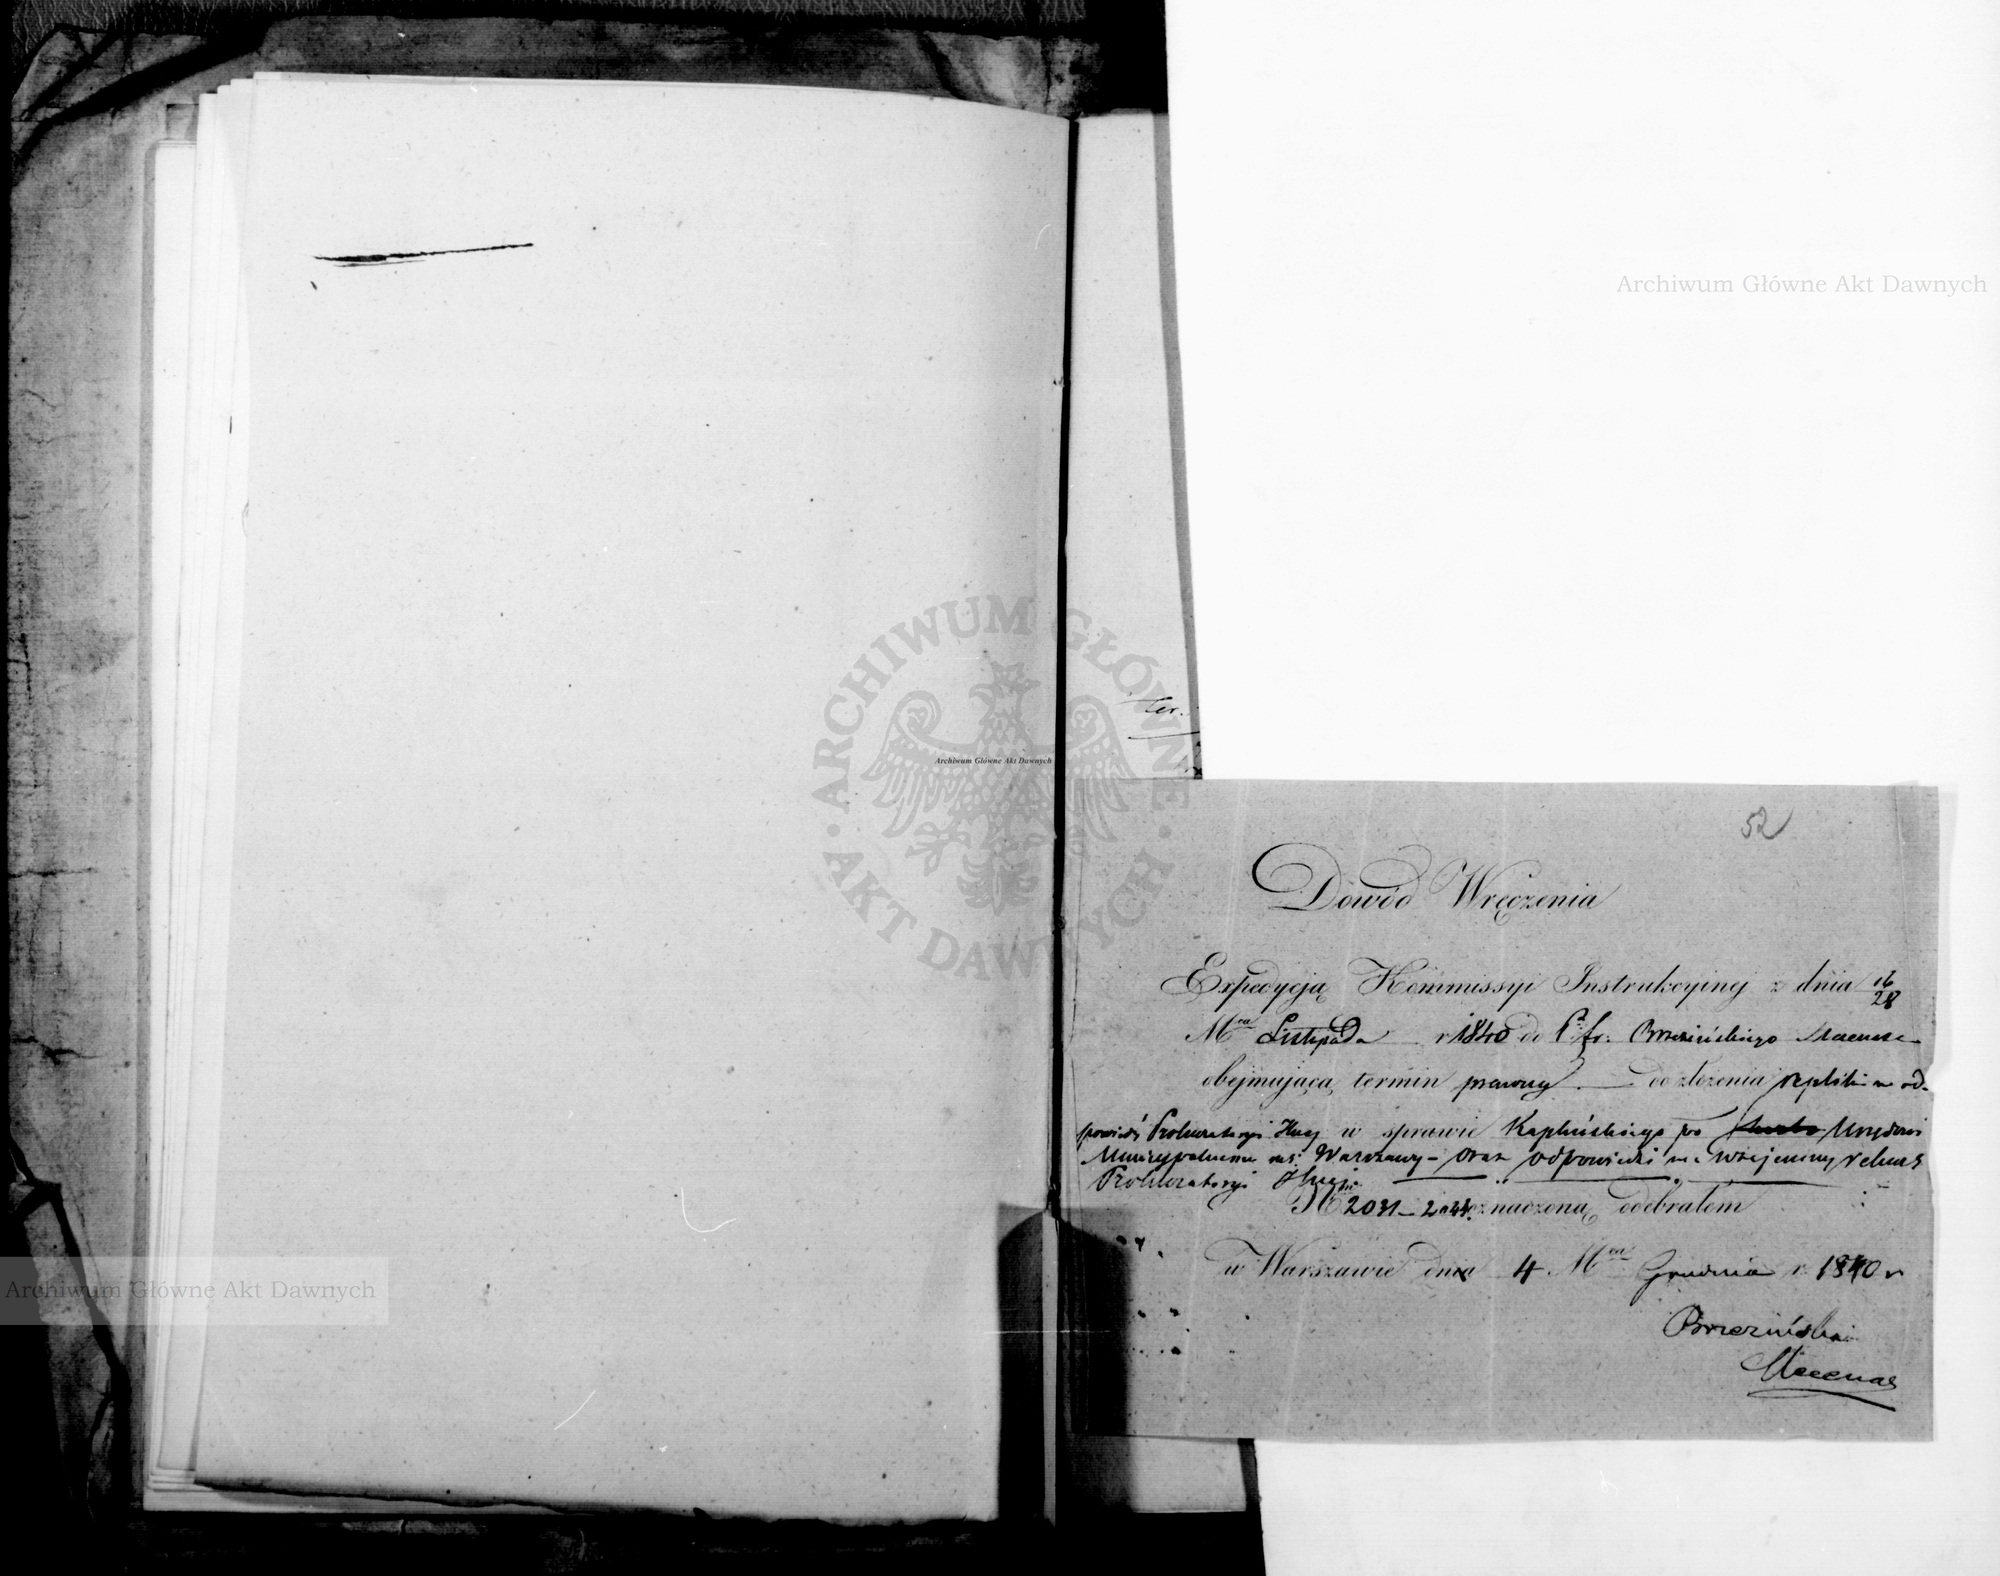 Archiwum Główne Akt Dawnych
ter.
ARCHIWUM GŁÓWNE AKT DAWNYCH
Archiwum Główne Akt Dawnych
52
Dowód Wręczenia
Expedycją Kommissyi Instrukcyinej z dnia 16/28
Mca Listopada r 1840 do Pa fr: Brzezińskiego Mecenasa
obejmującą termin prawny do złożenia repliki na od-
powiedź Prokuratoryi Jlnej w sprawie Kaplińskiego pko Urzędowi
Municypalnemu m: Warszawy – oraz odpowiedzi na wzajemny rekurs
Prokuratoryi Jlnej.
No 2031 – 2044. oznaczoną odebrałem
w Warszawie dnia 4 Mca Grudnia r. 1840 r
Brzeziński
Mecenas
Archiwum Główne Akt Dawnych